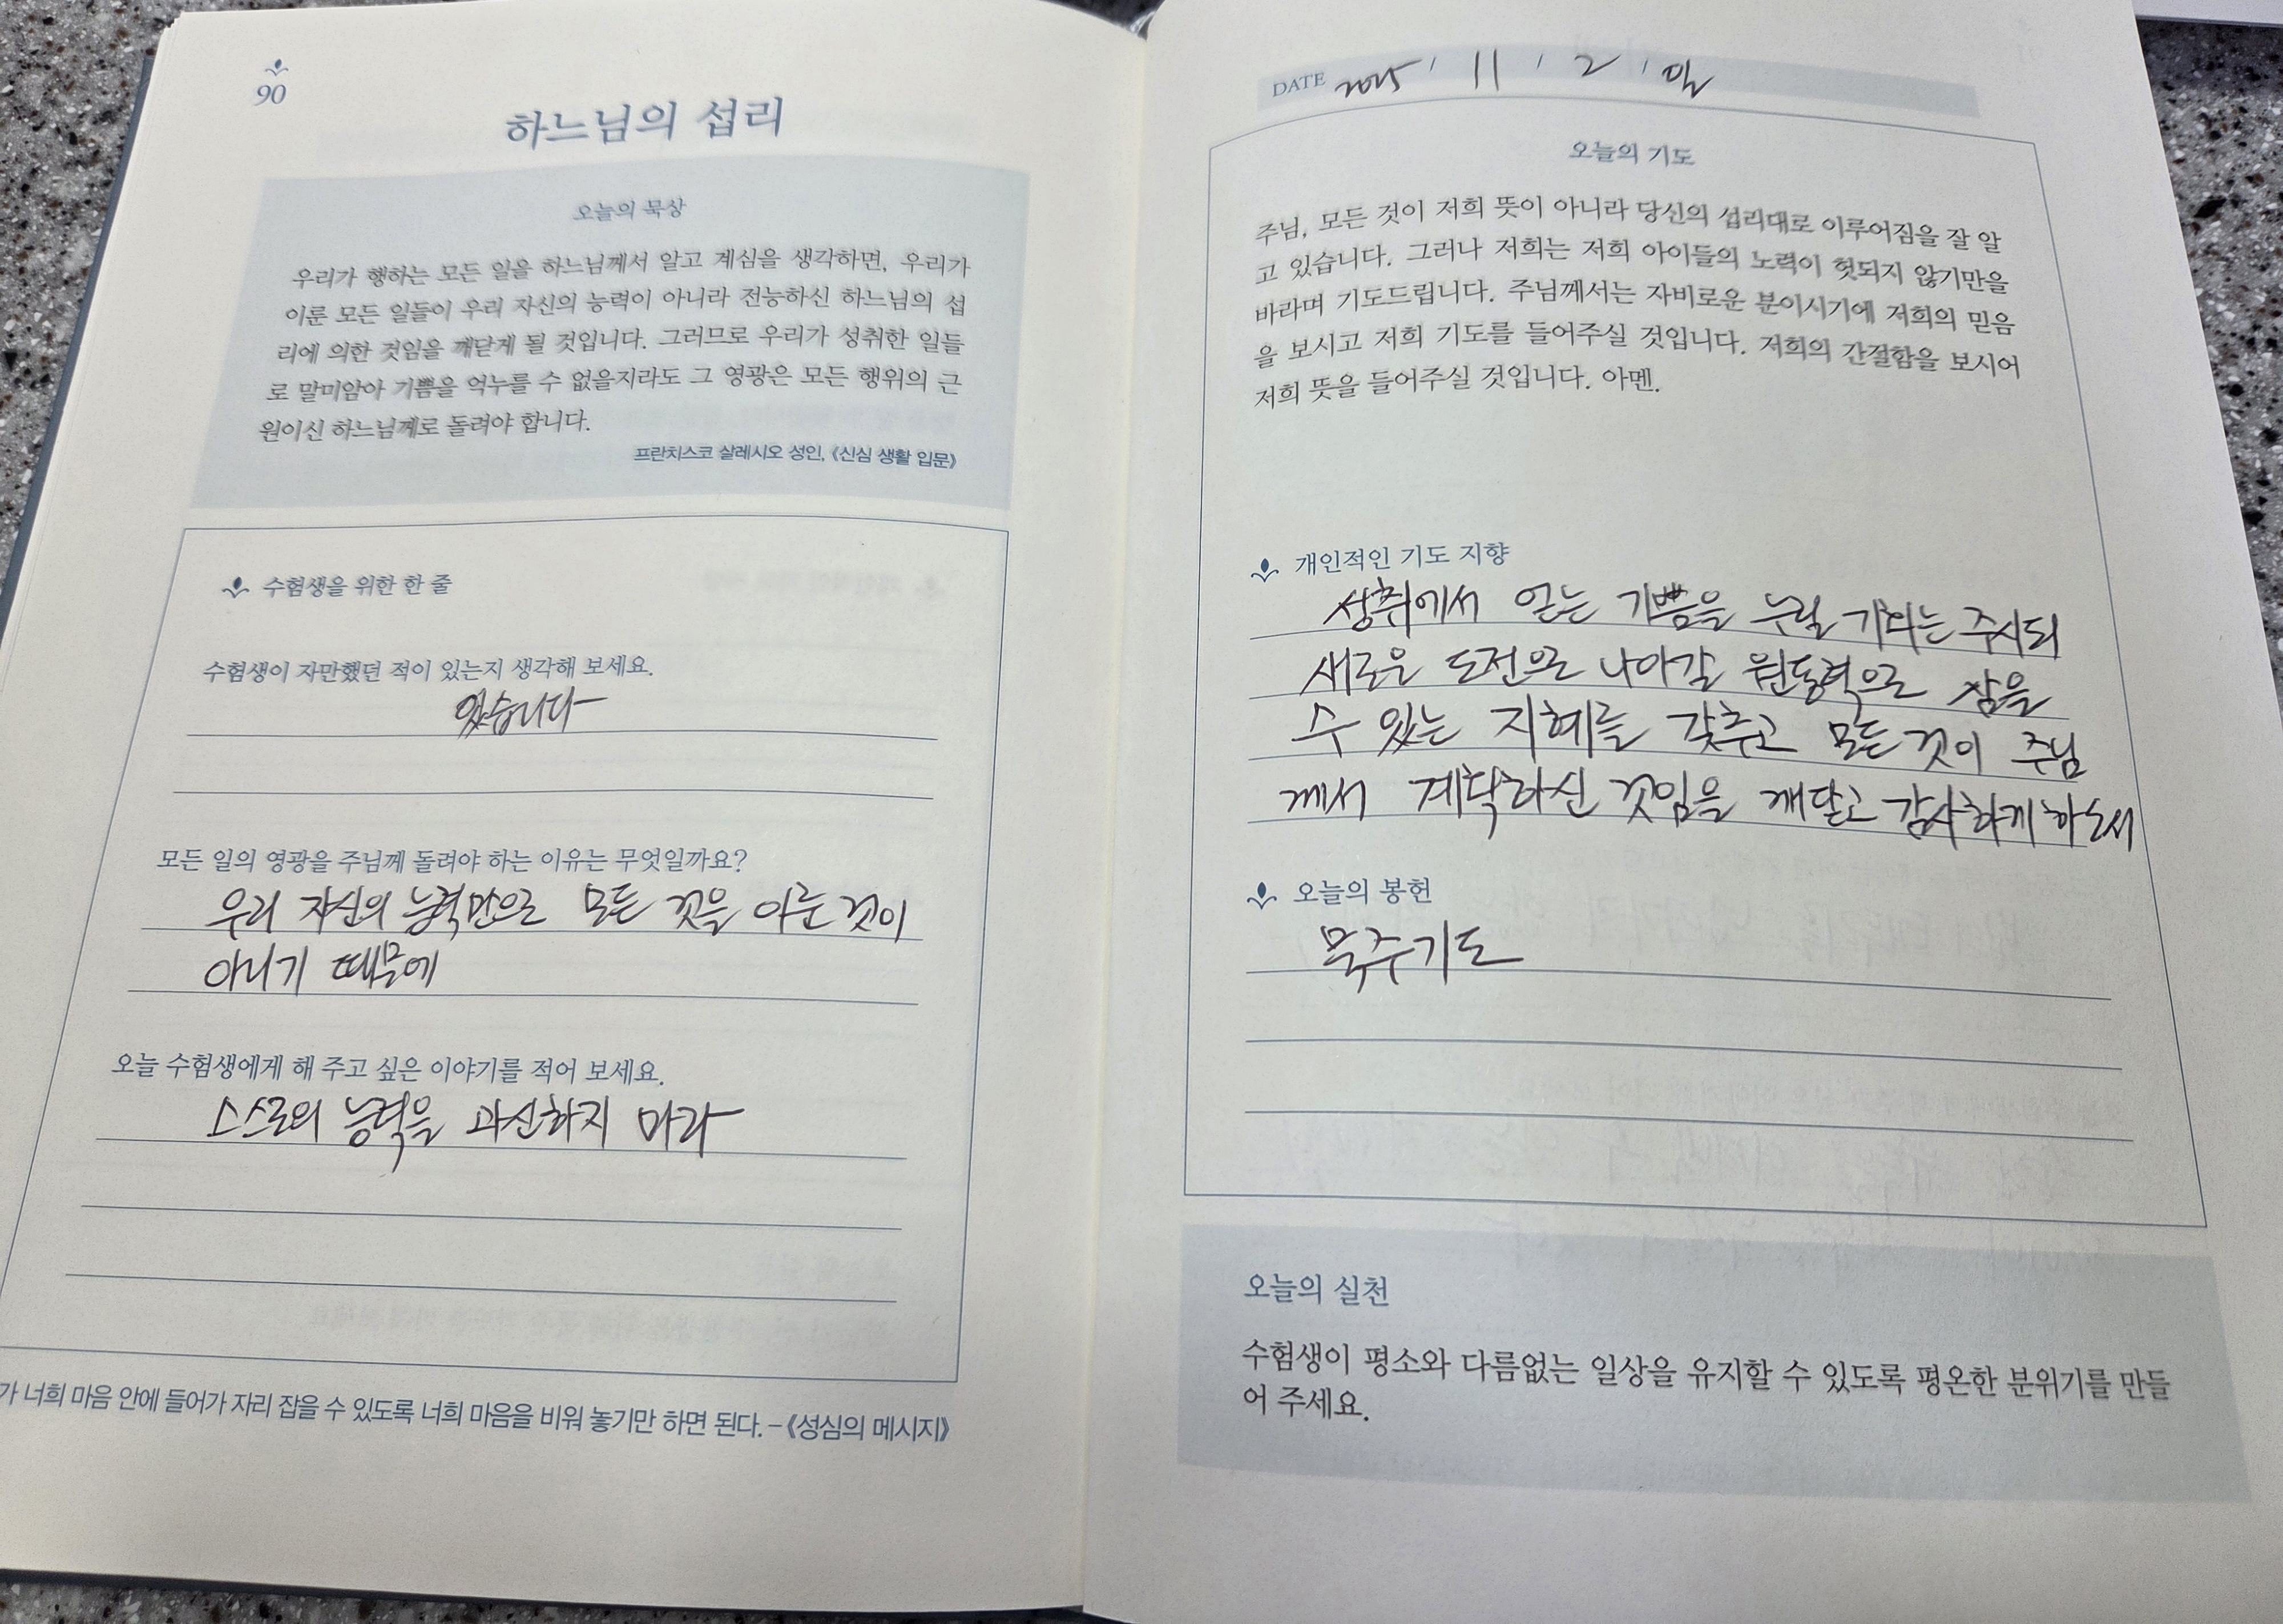 90
하느님의 섭리
오늘의 묵상
우리가 행하는 모든 일을 하느님께서 알고 계심을 생각하면, 우리가
이룬 모든 일들이 우리 자신의 능력이 아니라 전능하신 하느님의 섭
리에 의한 것임을 깨닫게 될 것입니다. 그러므로 우리가 성취한 일들
로 말미암아 기쁨을 억누를 수 없을지라도 그 영광은 모든 행위의 근
원이신 하느님께로 돌려야 합니다.
프란치스코 살레시오 성인, 《신심 생활 입문》
수험생을 위한 한 줄
수험생이 자만했던 적이 있는지 생각해 보세요.
있습니다
모든 일의 영광을 주님께 돌려야 하는 이유는 무엇일까요?
우리 자신의 능력만으로 모든 것을 이룬 것이
아니기 때문에
오늘 수험생에게 해 주고 싶은 이야기를 적어 보세요.
스스로의 능력을 과신하지 마라
가 너희 마음 안에 들어가 자리 잡을 수 있도록 너희 마음을 비워 놓기만 하면 된다. – 《성심의 메시지》
DATE 2025 / 11 / 2 / 일
오늘의 기도
주님, 모든 것이 저희 뜻이 아니라 당신의 섭리대로 이루어짐을 잘 알
고 있습니다. 그러나 저희는 저희 아이들의 노력이 헛되지 않기만을
바라며 기도드립니다. 주님께서는 자비로운 분이시기에 저희의 믿음
을 보시고 저희 기도를 들어주실 것입니다. 저희의 간절함을 보시어
저희 뜻을 들어주실 것입니다. 아멘.
개인적인 기도 지향
성취에서 얻는 기쁨을 누릴 기회는 주시되
새로운 도전으로 나아갈 원동력으로 삼을
수 있는 지혜를 갖추고 모든 것이 주님
께서 계획하신 것임을 깨닫고 감사하게 하소서
오늘의 봉헌
묵주기도
오늘의 실천
수험생이 평소와 다름없는 일상을 유지할 수 있도록 평온한 분위기를 만들
어 주세요.